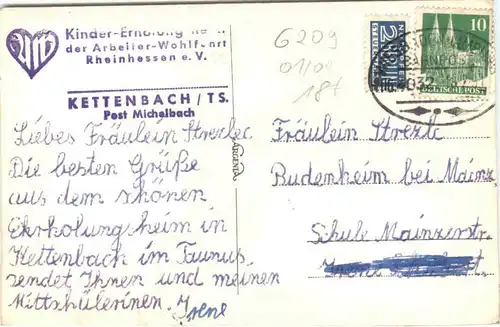 Kinder-Erholungsheim
der Arbeiter-Wohlfahrt
Rheinhessen e. V.
KETTENBACH/TS.
Post Michelbach
Liebes Fräulein Strezlc
Die besten Grüße
aus dem schönen
Ehrholungsheim in
Kettenbach im Taunus
sendet Ihnen und meinen
Mittshülerinen. Irene
ARGENTA
6209
01/01
18t
2
NOTOPFER
BERLIN
STEUERMARKE
10
DEUTSCHE POST
BAHNPOST
Fräulein Strezlc
Budenheim bei Mainz
Schule Mainzerstr.